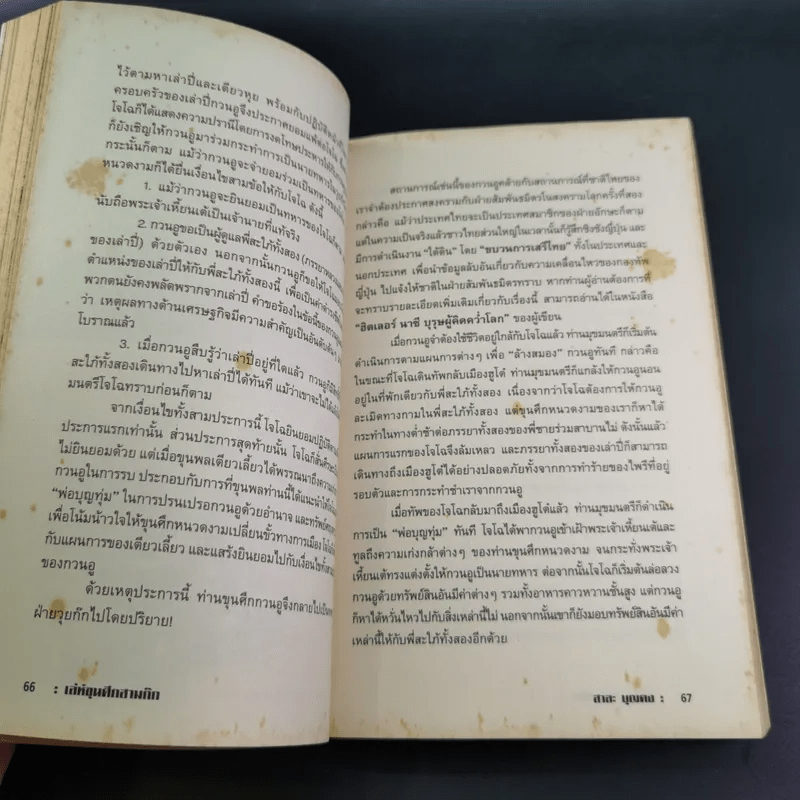 ไว้ตามหาเล่าปี่และเตียวหุย พร้อมกับปฏิบัติ
ครอบครัวของเล่าปี่กวนอูจึงประกาศยอมแพ้ต่อโจโฉ
โจโฉก็ได้แสดงความปรานีโดยการงดโทษประหารให้กับกวนอู
ก็ยังเชิญให้กวนอูมาร่วมกระทำการเป็นนายทหาร
กระนั้นก็ตาม แม้ว่ากวนอูจะจำยอมร่วมเป็นทหารของ
หนวดงามก็ได้ยื่นเงื่อนไขสามข้อให้กับโจโฉ ดังนี้
1. แม้ว่ากวนอูจะยินยอมเป็นทหารของโจโฉ
นับถือพระเจ้าเหี้ยนเต้เป็นเจ้านายที่แท้จริง
2. กวนอูขอเป็นผู้ดูแลพี่สะใภ้ทั้งสอง (ภรรยา
ของเล่าปี่) ด้วยตัวเอง นอกจากนั้นกวนอูก็ขอให้โจโฉ
ตำแหน่งของเล่าปี่ให้กับพี่สะใภ้ทั้งสองนี้ เพื่อเป็นค่า
พวกตนยังคงพลัดพรากจากเล่าปี่ คำขอร้องในข้อนี้ของกวนอู
ว่า เหตุผลทางด้านเศรษฐกิจมีความสำคัญเป็นอันดับต้นๆ
โบราณแล้ว
3. เมื่อกวนอูสืบรู้ว่าเล่าปี่อยู่ที่ใดแล้ว กวนอู
สะใภ้ทั้งสองเดินทางไปหาเล่าปี่ได้ทันที แม้ว่าเขาจะไม่ได้
มนตรีโจโฉทราบก่อนก็ตาม
จากเงื่อนไขทั้งสามประการนี้ โจโฉยินยอมปฏิบัติ
ประการแรกเท่านั้น ส่วนประการสุดท้ายนั้น โจโฉ
ไม่ยินยอมด้วย แต่เมื่อขุนพลเตียวเลี้ยวได้พรรณนาถึงความ
กวนอูในการรบ ประกอบกับการที่ขุนพลท่านนี้ได้แนะนำให้
“พ่อบุญทุ่ม” ในการปรนเปรอกวนอูด้วยอำนาจ และทรัพย์
เพื่อโน้มน้าวใจให้ขุนศึกหนวดงามเปลี่ยนขั้วทางการเมือง โจโฉ
กับแผนการของเตียวเลี้ยว และแสร้งยินยอมไปกับเงื่อนไขทั้งสาม
ของกวนอู
ด้วยเหตุประการนี้ ท่านขุนศึกกวนอูจึงกลายไปเป็น
ฝ่ายวุยก๊กไปโดยปริยาย!
66 : เล่ห์ขุนศึกสามก๊ก
สถานการณ์เช่นนี้ของกวนอูคล้ายกับสถานการณ์ที่ชาติไทยของ
เราจำต้องประกาศสงครามกับฝ่ายสัมพันธมิตรในสงครามโลกครั้งที่สอง
กล่าวคือ แม้ว่าประเทศไทยจะเป็นประเทศสมาชิกของฝ่ายอักษะก็ตาม
แต่ในความเป็นจริงแล้วชาวไทยส่วนใหญ่ในเวลานั้นก็รู้สึกชิงชังญี่ปุ่น และ
มีการดำเนินงาน “ใต้ดิน” โดย “ขบวนการเสรีไทย” ทั้งในประเทศและ
นอกประเทศ เพื่อนำข้อมูลลับอันเกี่ยวกับความเคลื่อนไหวของกองทัพ
ญี่ปุ่น ไปแจ้งให้ชาติในฝ่ายสัมพันธมิตรทราบ หากท่านผู้อ่านต้องการที่
จะทราบรายละเอียดเพิ่มเติมเกี่ยวกับเรื่องนี้ สามารถอ่านได้ในหนังสือ
“ฮิตเลอร์ นาซี บุรุษผู้คิดคว่ำโลก” ของผู้เขียน
เมื่อกวนอูจำต้องใช้ชีวิตอยู่ใกล้กับโจโฉแล้ว ท่านมุขมนตรีก็เริ่มต้น
ดำเนินการตามแผนการต่างๆ เพื่อ “ล้างสมอง” กวนอูทันที กล่าวคือ
ในขณะที่โจโฉเดินทัพกลับเมืองฮูโต๋ ท่านมุขมนตรีก็แกล้งให้กวนอูนอน
อยู่ในที่พักเดียวกับพี่สะใภ้ทั้งสอง เนื่องจากว่าโจโฉต้องการให้กวนอู
ละเมิดทางกามในพี่สะใภ้ทั้งสอง แต่ขุนศึกหนวดงามของเราก็หาได้
กระทำในทางต่ำช้าต่อภรรยาทั้งสองของพี่ชายร่วมสาบานไม่ ดังนั้นแล้ว
แผนการแรกของโจโฉจึงล้มเหลว และภรรยาทั้งสองของเล่าปี่ก็สามารถ
เดินทางถึงเมืองฮูโต๋ได้อย่างปลอดภัยทั้งจากการทำร้ายของไพรีที่อยู่
รอบตัวและการกระทำชำเราจากกวนอู
เมื่อทัพของโจโฉกลับมาถึงเมืองฮูโต๋แล้ว ท่านมุขมนตรีก็ดำเนิน
การเป็น “พ่อบุญทุ่ม” ทันที โจโฉได้พากวนอูเข้าเฝ้าพระเจ้าเหี้ยนเต้และ
ทูลถึงความเก่งกล้าต่างๆ ของท่านขุนศึกหนวดงาม จนกระทั่งพระเจ้า
เหี้ยนเต้ทรงแต่งตั้งให้กวนอูเป็นนายทหาร ต่อจากนั้นโจโฉก็เริ่มต้นล่อลวง
กวนอูด้วยทรัพย์สินอันมีค่าต่างๆ รวมทั้งอาหารคาวหวานชั้นสูง แต่กวนอู
ก็หาได้หวั่นไหวไปกับสิ่งเหล่านี้ไม่ นอกจากนั้นเขาก็ยังมอบทรัพย์สินอันมีค่า
เหล่านี้ให้กับพี่สะใภ้ทั้งสองอีกด้วย
สาละ บุญคง : 67